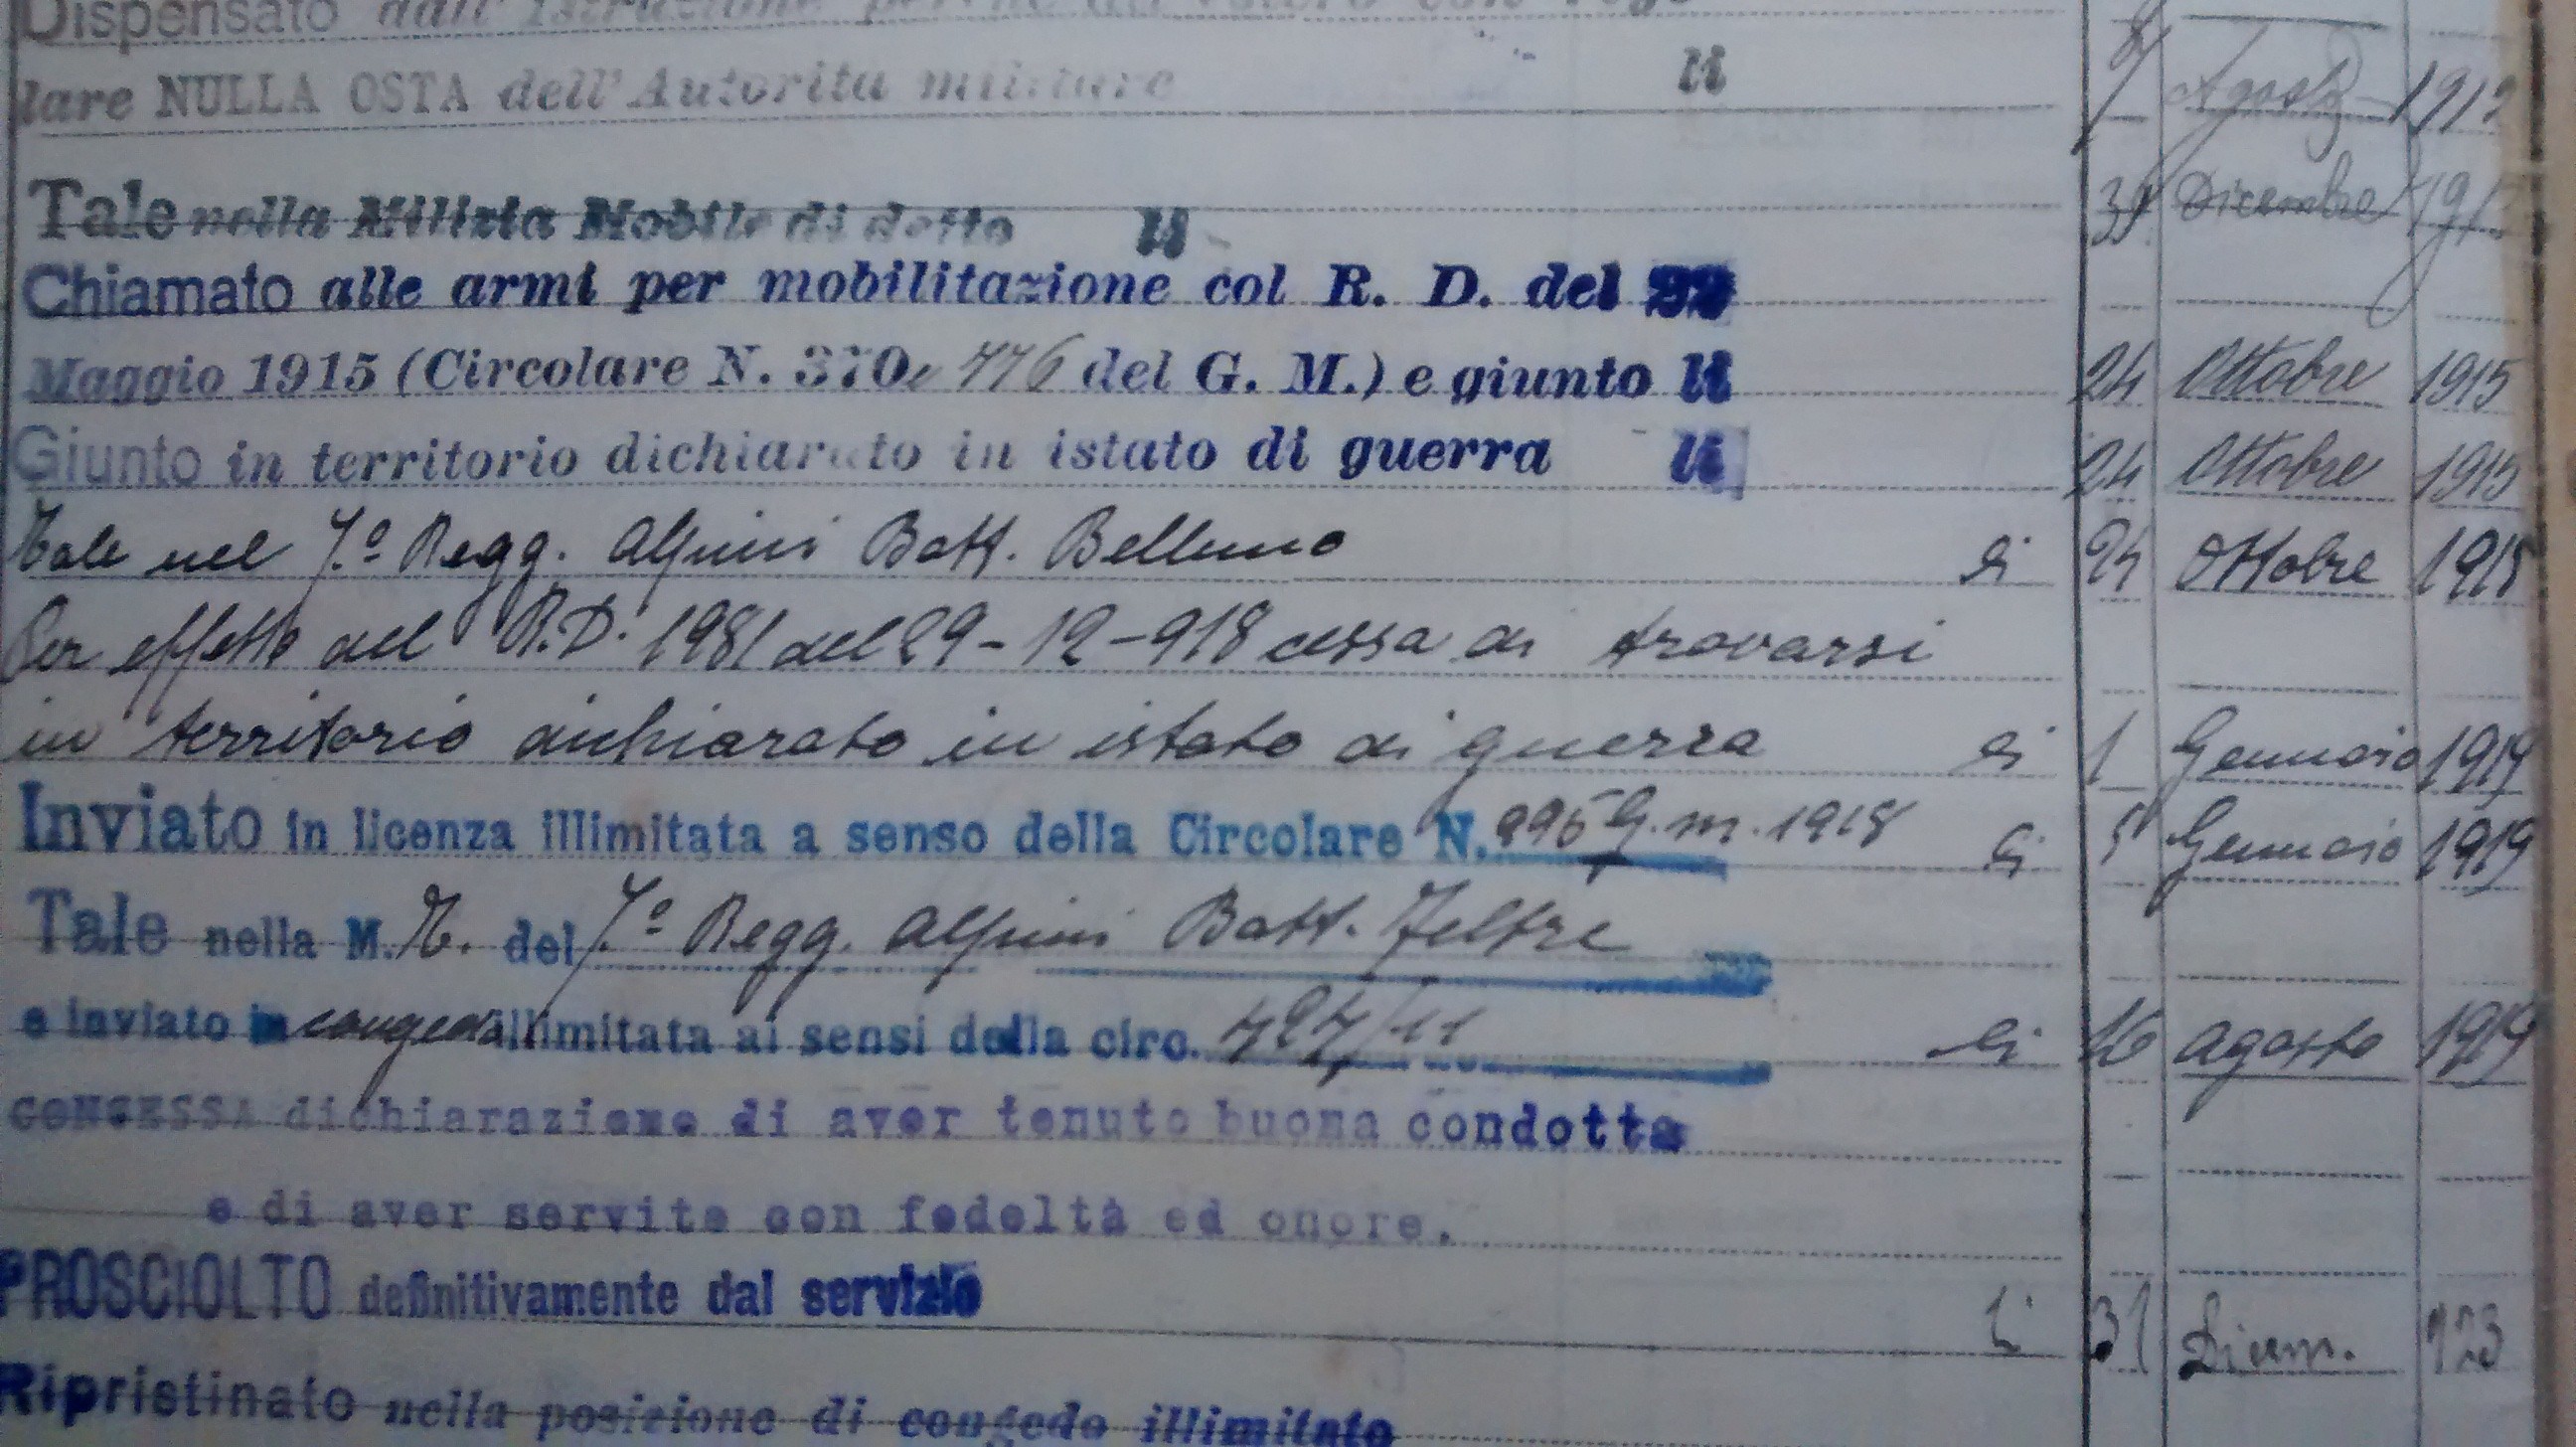 Dispensato dall'istruzione perchè da
lare NULLA OSTA dell'Autorita militare li 7 Agosto
Tale nella Milizia Mobile di detto li 31 Dicembre
Chiamato alle armi per mobilitazione col R. D. del 22
Maggio 1915 (Circolare N. 370 e 776 del G. M.) e giunto li 24 Ottobre 1915
Giunto in territorio dichiarato in istato di guerra li 24 Ottobre 1915
Tale nel 7.º Regg. Alpini Batt. Belluno li 24 Ottobre 1915
Per effetto del R.D. 1981 del 29-12-918 cessa di trovarsi
in territorio dichiarato in istato di guerra li 1 Gennaio 1919
Inviato in licenza illimitata a senso della Circolare N. G. M. 1918 li 5 Gennaio 1919
Tale nella M. T. del 7.º Regg. Alpini Batt. Feltre
e inviato in congedo illimitata ai sensi della circ. li 16 Agosto 1919
CONCESSA dichiarazione di aver tenuto buona condotta
e di aver servito con fedeltà ed onore.
PROSCIOLTO definitivamente dal servizio li 31 Dicem. 923
Ripristinato nella posizione di congedo illimitato